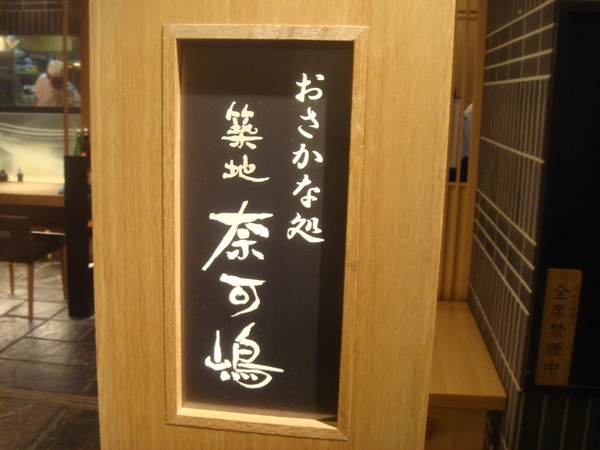 おさかな処
築地
奈可嶋
全席禁煙中